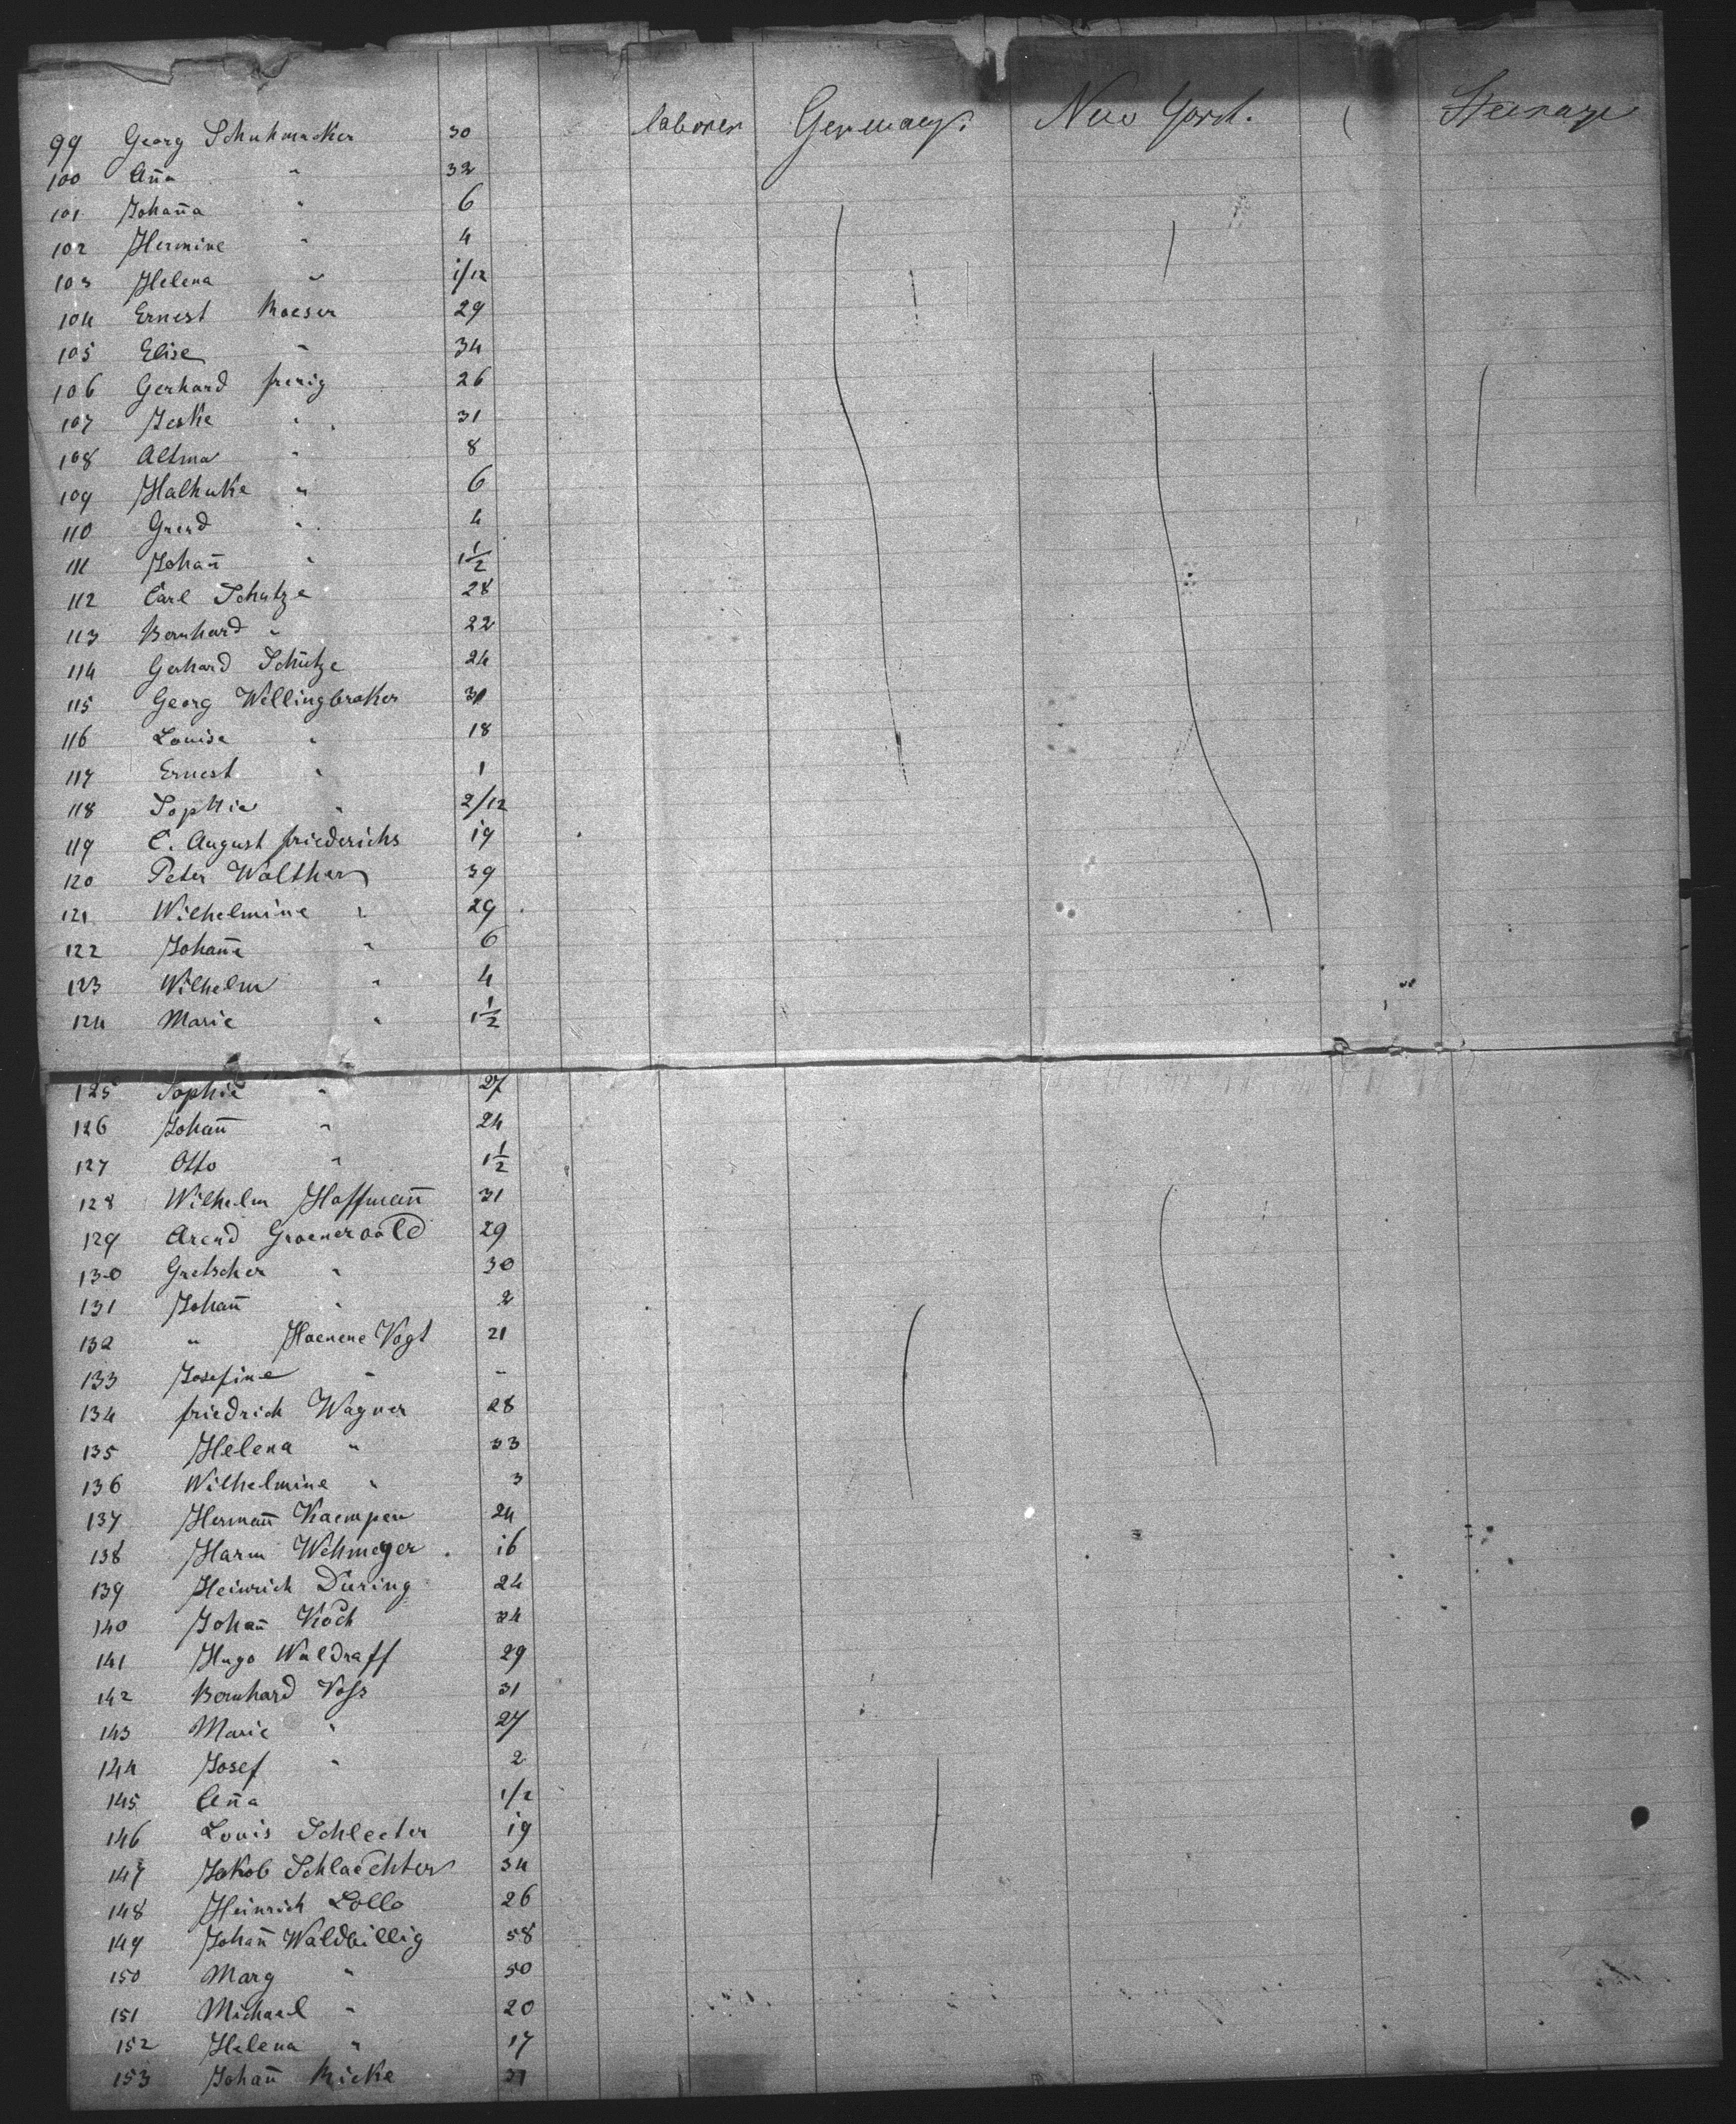 99 Georg Schuhmacker 30 laborer Germany. New York. Steerage
100 Am̄a " 32
101 Joham̄a " 6
102 Hermine " 4
103 Helena " 1/12
104 Ernest Roeser 29
105 Elise " 34
106 Gerhard frerig 26
107 Jeske " 31
108 Altma " 8
109 Halhuke " 6
110 Gerd " 4
111 Johan̄ " 1 1/2
112 Carl Schutze 28
113 Bernhard " 22
114 Gerhard Schütze 24
115 Georg Wellingbroker 31
116 Louise " 18
117 Ernest " 1
118 Sophie " 2/12
119 C. August friederichs 19
120 Peter Walther 39
121 Wilhelmine " 29
122 Johan̄e " 6
123 Wilhelm " 4
124 Marie " 1 1/2
125 Sophie " 27
126 Johan̄ " 24
127 Otto " 1 1/2
128 Wilhelm Hoffman̄ 31
129 Arend Groenewold 29
130 Gretscher " 30
131 Johan̄ " 2
132 " Haenene Vogt 21
133 Josefine " -
134 friedrich Wagner 28
135 Helena " 33
136 Wilhelmine " 3
137 Herman̄ Kaempen 24
138 Harm Wehmeyer 16
139 Heinrich Düring 24
140 Johan̄ Koch 34
141 Hugo Waldraff 29
142 Bernhard Voss 31
143 Marie " 27
144 Josef " 2
145 An̄a 1/2
146 Louis Schlecter 19
147 Jakob Schlaechter 34
148 Heinrich Lolle 26
149 Johan̄ Waldbillig 58
150 Marg " 50
151 Michael " 20
152 Helena " 17
153 Johan̄ Ricke 31